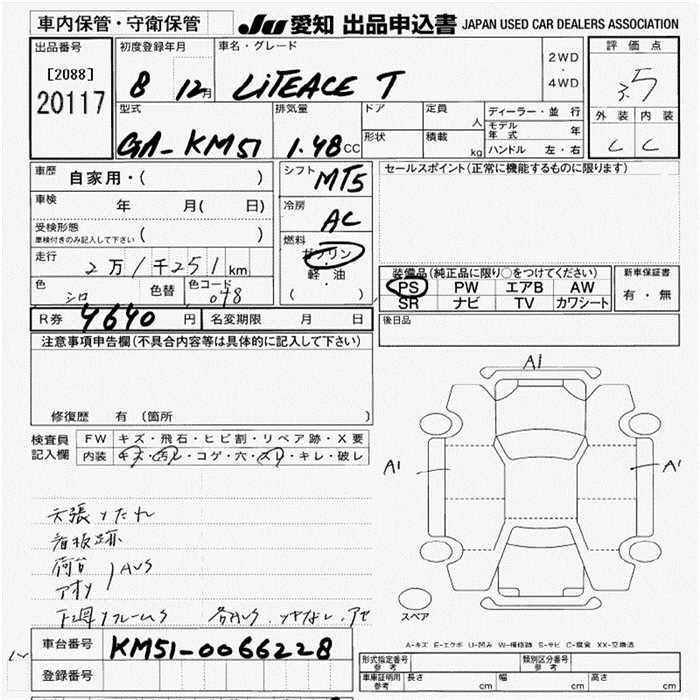 車内保管・守衛保管
JU 愛知 出品申込書 JAPAN USED CAR DEALERS ASSOCIATION
出品番号
[2088]
20117
初度登録年月
8 12月
車名・グレード
LiTEACE T
2WD
・
4WD
評価点
3.5
外装 内装
C C
型式
GA-KM51
排気量
1.48 CC
ドア
形状
定員
人
積載
kg
ディーラー・並 行
モデル年式 年
ハンドル 左・右
車歴
自家用・( )
車検 年 月( 日)
受検形態
車検付きのみ記入して下さい ( )
走行
2万1千251 km
色 シロ 色替 色コード 048
シフト MT5
冷房 AC
燃料
ガソリン
・
軽・油
( )
セールスポイント(正常に機能するものに限ります)
装備品(純正品に限り○をつけてください)
PS PW エアB AW
SR ナビ TV カワシート
新車保証書
有・無
後日品
R券 4640 円 名変期限 月 日
注意事項申告欄(不具合内容等は具体的に記入して下さい)
修復歴 有 (箇所 )
検査員記入欄
FW キズ・飛石・ヒビ割・リペア跡・X要
内装 キズ・汚レ・コゲ・穴・スリ・キレ・破レ
天張りたれ
看板跡
荷台
アオリ
AUS
下廻り フレームS
A1
A1
A1
スペア
A-キズ E-エクボ U-凹み W-補修跡 S-サビ C-腐食 XX-交換済
車台番号 KM51-0066228
登録番号
形式指定番号 参考
類別区分番号 参考
車庫証明用 参考 長さ cm 幅 cm 高さ cm